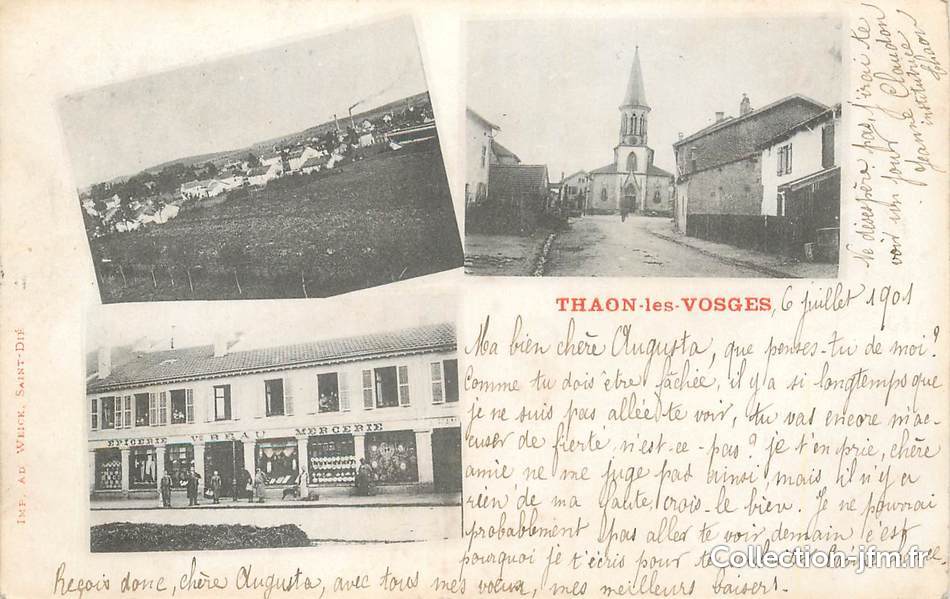 THAON-les-VOSGES, 6 juillet 1901
Ma bien chère Augusta, que penses-tu de moi?
Comme tu dois être fâchée, il y a si longtemps que
je ne suis pas allée te voir, tu vas encore m'ac-
cuser de fierté, n'est-ce-pas? je t'en prie, chère
amie ne me juge pas ainsi, mais il n'y a
rien de ma faute, crois-le bien. Je ne pourrai
probablement pas aller te voir demain c'est
pourquoi je t'écris pour te
Reçois donc, chère Augusta, avec tous mes vœux, mes meilleurs baisers.
Ne désespère pas, j'irai te
voir un jour
Jeanne Claudon
institutrice
Thaon
EPICERIE Vve REAU MERCERIE
IMP. AD. WEICK, SAINT-DIÉ
Collection-jfm.fr